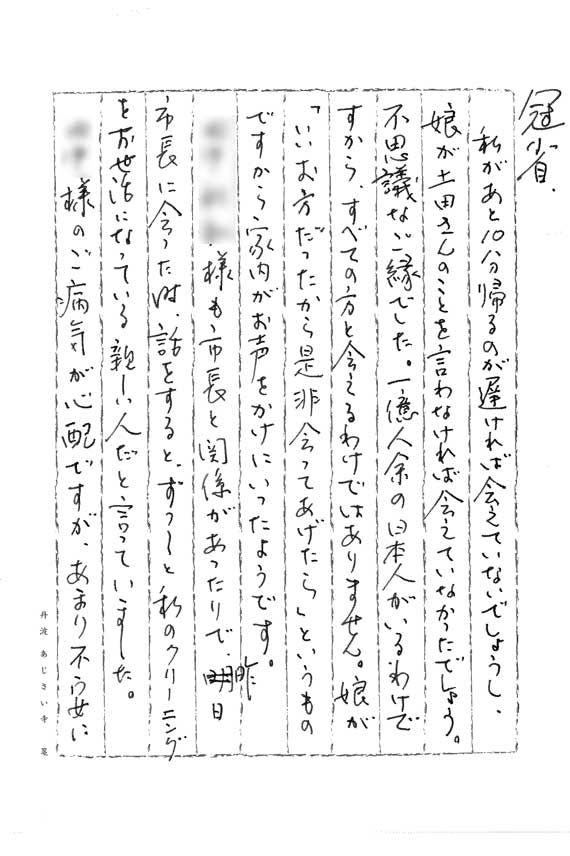 冠省.
私があと10分帰るのが遅ければ会えていないでしょうし、
娘が土田さんのことを言わなければ会えていなかったでしょう。
不思議なご縁でした。一億人余の日本人がいるわけで
すから、すべての方と会えるわけではありません。娘が
「いいお方だったから是非会ってあげたら」というもの
ですから家内がお声をかけにいったようです。
様も市長と関係があったりで、昨日
市長に会った時、話をすると、ずっーと私のクリーニング
をお世話になっている親しい人だと言っていました。
様のご病気が心配ですが、あまり不安に
丹波 あじさい寺